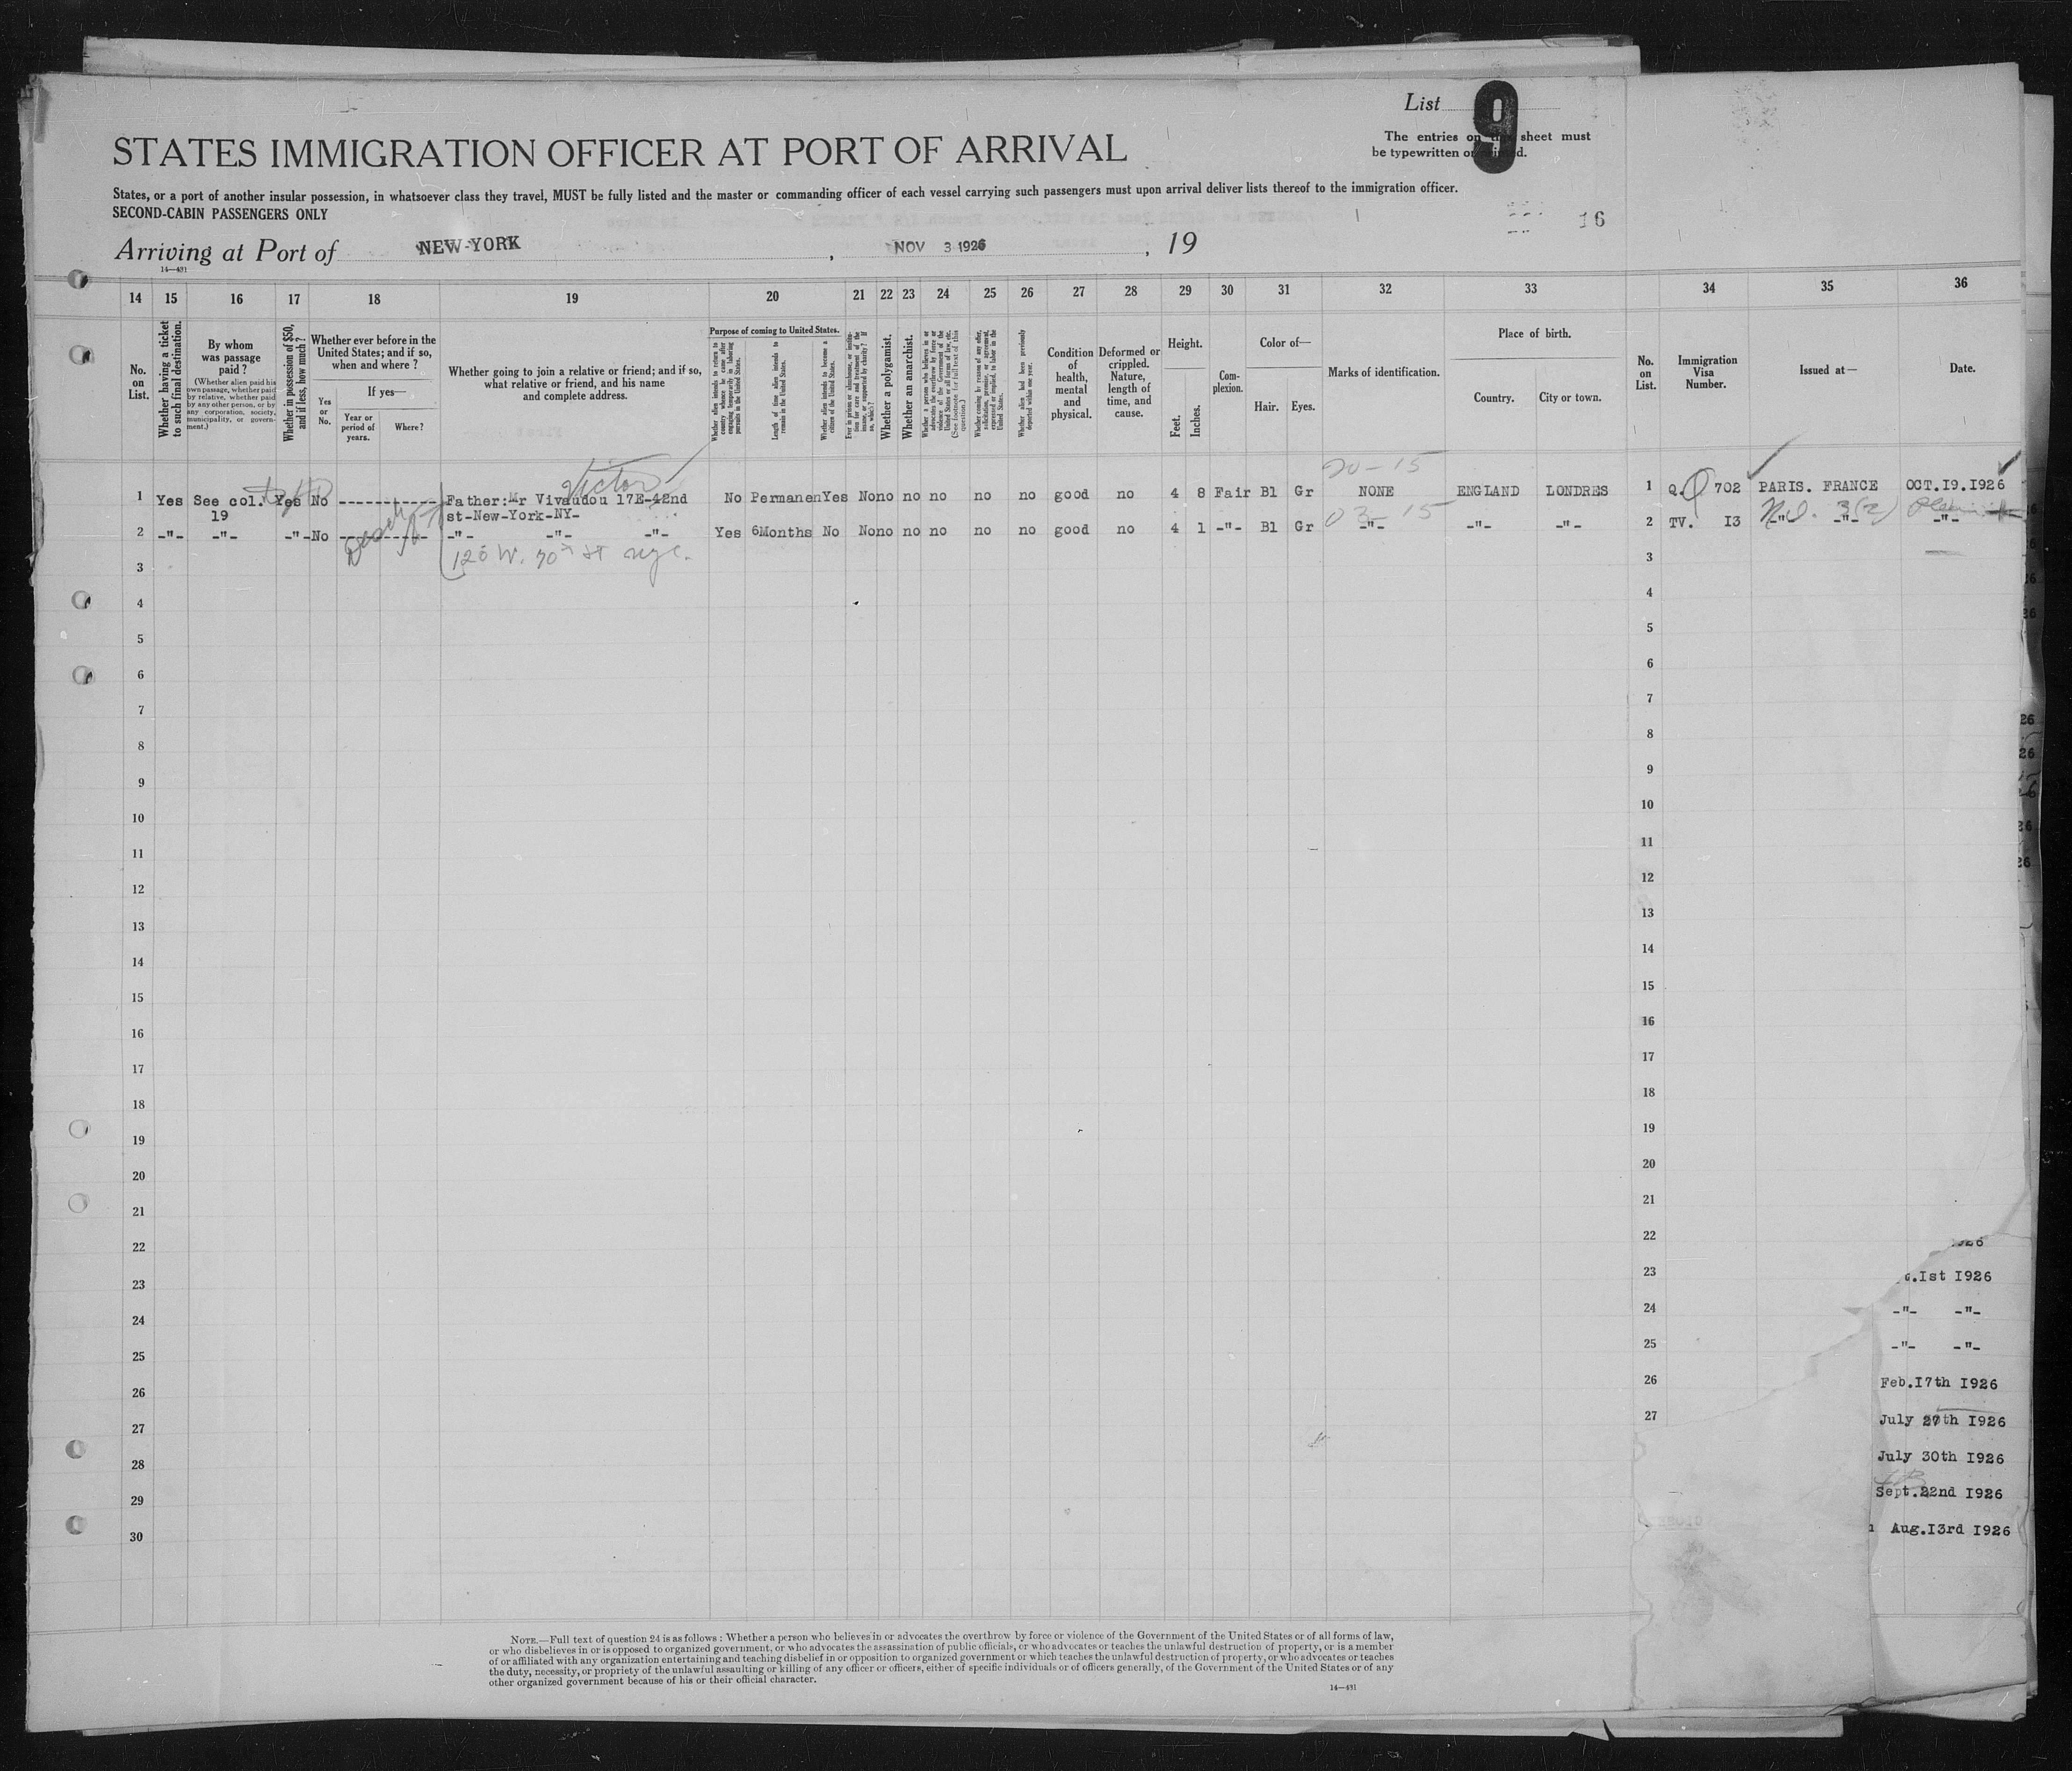 List 9
The entries on sheet must
be typewritten or
STATES IMMIGRATION OFFICER AT PORT OF ARRIVAL
States, or a port of another insular possession, in whatsoever class they travel, MUST be fully listed and the master or commanding officer of each vessel carrying such passengers must upon arrival deliver lists thereof to the immigration officer.
SECOND-CABIN PASSENGERS ONLY
16
Arriving at Port of NEW-YORK , NOV 3 1926 , 19
14—431
14 15 16 17 18 19 20 21 22 23 24 25 26 27 28 29 30 31 32 33 34 35 36
No. on List.
Whether having a ticket to such final destination.
By whom was passage paid?
(Whether alien paid his own passage, whether paid by relative, whether paid by any other person, or by any corporation, society, municipality, or government.)
Whether in possession of $50, and if less, how much?
Whether ever before in the United States; and if so, when and where?
Yes or No.
If yes—
Year or period of years.
Where?
Whether going to join a relative or friend; and if so, what relative or friend, and his name and complete address.
Purpose of coming to United States.
Whether alien intends to return to country whence he came after engaging temporarily in laboring pursuits in the United States.
Length of time alien intends to remain in the United States.
Whether alien intends to become a citizen of the United States.
Ever in prison or almshouse, or institution for care and treatment of the insane, or supported by charity? If so, which?
Whether a polygamist.
Whether an anarchist.
Whether a person who believes in or advocates the overthrow by force or violence of the Government of the United States or all forms of law, etc. (See footnote for full text of this question.)
Whether coming by reason of any offer, solicitation, promise, or agreement, expressed or implied, to labor in the United States.
Whether alien had been previously deported within one year.
Condition of health, mental and physical.
Deformed or crippled. Nature, length of time, and cause.
Height.
Feet.
Inches.
Complexion.
Color of—
Hair.
Eyes.
Marks of identification.
Place of birth.
Country.
City or town.
No. on List.
Immigration Visa Number.
Issued at—
Date.
Victor
20-15
1 Yes See col. Yes No ------------ Father:Mr Vivaudou 17E-42nd No Permanen Yes No no no no no no good no 4 8 Fair Bl Gr NONE ENGLAND LONDRES 1 Q. 702 PARIS. FRANCE OCT.19.1926
19 st-New-York-NY-
03-15
2 -"- -"- -"- No ------------ -"- -"- -"- Yes 6Months No No no no no no no good no 4 1 -"- Bl Gr -"- -"- -"- 2 TV. I3 -"- -"- -"-
120 W. 70th St nyc.
3 3
4 4
5 5
6 6
7 7
8 8
9 9
10 10
11 11
12 12
13 13
14 14
15 15
16 16
17 17
18 18
19 19
20 20
21 21
22 22
23 23 .1st 1926
24 24 -"- -"-
25 25 -"- -"-
26 26 Feb.17th 1926
27 27 July 27th 1926
28 July 30th 1926
29 Sept.22nd 1926
30 Aug.13rd 1926
NOTE.—Full text of question 24 is as follows: Whether a person who believes in or advocates the overthrow by force or violence of the Government of the United States or of all forms of law,
or who disbelieves in or is opposed to organized government, or who advocates the assassination of public officials, or who advocates or teaches the unlawful destruction of property, or is a member
of or affiliated with any organization entertaining and teaching disbelief in or opposition to organized government or which teaches the unlawful destruction of property, or who advocates or teaches
the duty, necessity, or propriety of the unlawful assaulting or killing of any officer or officers, either of specific individuals or of officers generally, of the Government of the United States or of any
other organized government because of his or their official character.
14—431